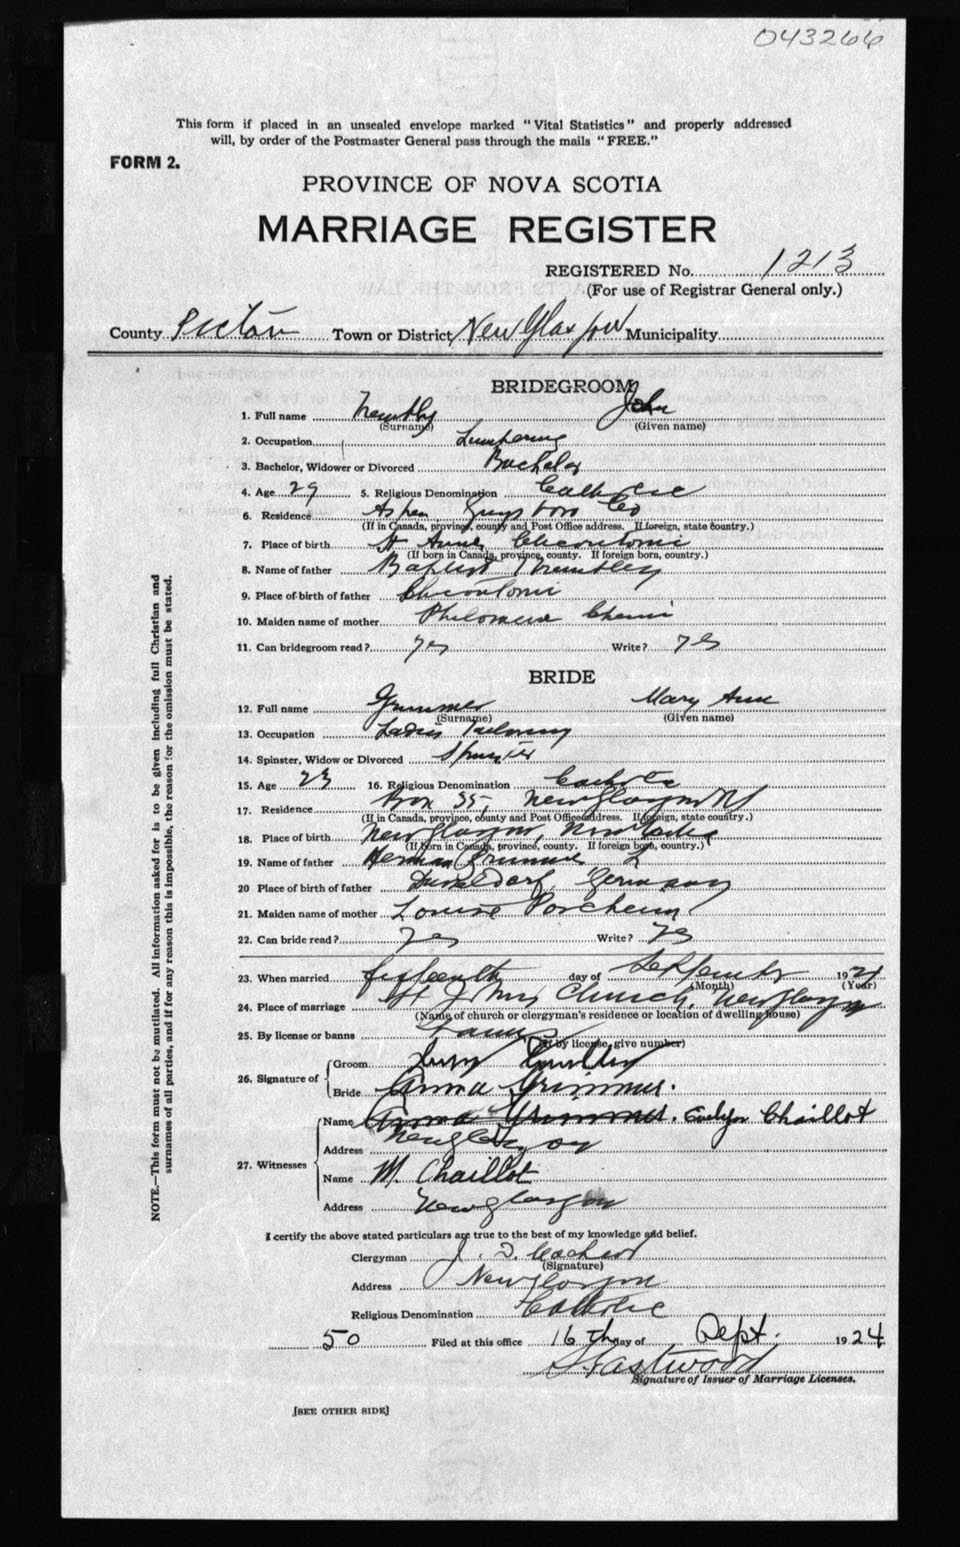 043266
This form if placed in an unsealed envelope marked "Vital Statistics" and properly addressed
will, by order of the Postmaster General pass through the mails "FREE."
FORM 2.
PROVINCE OF NOVA SCOTIA
MARRIAGE REGISTER
REGISTERED No. 1213
(For use of Registrar General only.)
County Pictou Town or District New Glasgow Municipality
BRIDEGROOM
1. Full name John
(Surname) (Given name)
2. Occupation Lumbering
3. Bachelor, Widower or Divorced Bachelor
4. Age 29 5. Religious Denomination Catholic
6. Residence Aspen Guysboro Co
(If in Canada, province, county and Post Office address. If foreign, state country.)
7. Place of birth St Annes Checoutomi
(If born in Canada, province, county. If foreign born, country.)
8. Name of father Baptist Trembley
9. Place of birth of father Checoutomi
10. Maiden name of mother Philomene
11. Can bridegroom read? yes Write? yes
BRIDE
12. Full name Grimmer Mary Ann
(Surname) (Given name)
13. Occupation Ladies Tailoring
14. Spinster, Widow or Divorced Spinster
15. Age 23 16. Religious Denomination Catholic
17. Residence Box 35, New Glasgow NS
(If in Canada, province, county and Post Office address. If foreign, state country.)
18. Place of birth New Glasgow, Nova Scotia
(If born in Canada, province, county. If foreign born, country.)
19. Name of father Herman
20 Place of birth of father Dusseldorf, Germany
21. Maiden name of mother Louise
22. Can bride read? yes Write? yes
23. When married fifteenth day of September 1924
(Month) (Year)
24. Place of marriage St Johns Church, New Glasgow
(Name of church or clergyman's residence or location of dwelling house)
25. By license or banns Banns
(If by license, give number)
26. Signature of Groom
Bride Anna Grimmer.
27. Witnesses Name Anna Grimmer. Evelyn Chaillot
Address New Glasgow
Name M. Chaillot
Address New Glasgow
I certify the above stated particulars are true to the best of my knowledge and belief.
Clergyman J. D.
(Signature)
Address New Glasgow
Religious Denomination Catholic
50 Filed at this office 16th day of Sept. 1924
Eastwood
Signature of Issuer of Marriage Licenses.
[SEE OTHER SIDE]
NOTE.—This form must not be mutilated. All information asked for is to be given including full Christian and
surnames of all parties, and if for any reason this is impossible, the reason for the omission must be stated.